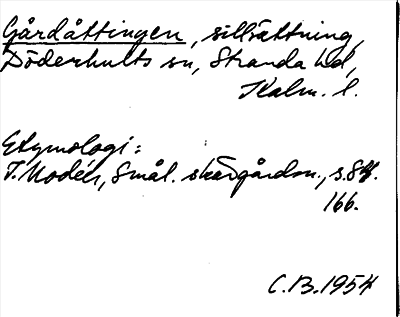 Gårdåttingen, sillsättning,
Döderhults sn, Stranda hd,
Kalm. l.
Etymologi:
T. Modéer, Smål. skärgårdsn., s. 84.
166.
C.B. 1954